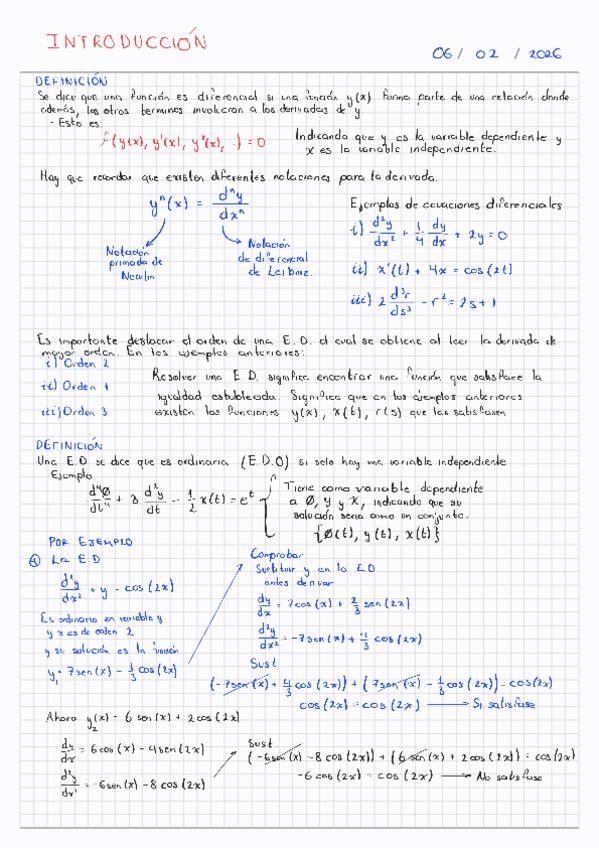 INTRODUCCIÓN
06 / 02 / 2026
DEFINICIÓN
Se dice que una función es diferencial si una función y(x) forma parte de una relación donde
además, los otros terminos involucran a los derivadas de y
- Esto es:
f(y(x), y'(x), y''(x), .) = 0
Indicando que y es la variable dependiente y
x es la variable independiente.
Hay que recordar que existen diferentes notaciones para la derivada.
yⁿ(x) = dⁿy/dxⁿ
Notación
primada de
Newton
Notación
de diferencial
de Leibniz.
Ejemplos de ecuaciones diferenciales
i) d²y/dx² + 1/4 dy/dx + 2y = 0
ii) x'(t) + 4x = cos(2t)
iii) 2 d³r/ds³ - r² = 2s + 1
Es importante destacar el orden de una E.D. el cual se obtiene al leer la derivada de
mayor orden. En los ejemplos anteriores:
i) Orden 2
ii) Orden 1
iii) Orden 3
Resolver una E.D. significa encontrar una función que satisface la
igualdad establecida. Significa que en los ejemplos anteriores
existen las funciones y(x), x(t), r(s) que las satisfacen
DEFINICIÓN
Una E.D se dice que es ordinaria (E.D.O) si solo hay una variable independiente
Ejemplo
d⁴Ø/dt⁴ + 3 d²y/dt - 1/2 x(t) = eᵗ
Tiene como variable dependiente
a Ø, y y x, indicando que su
solución seria como un conjunto.
{Ø(t), y(t), x(t)}
POR EJEMPLO
La E.D
d²y/dx² + y - cos(2x)
Es ordinario en variable y
y x es de orden 2
y su solución es la función
y₁ = 7sen(x) - 1/3 cos(2x)
Comprobar
Sustituir y en la ED
antes derivar
dy/dx = 7cos(x) + 2/3 sen(2x)
d²y/dx² = -7sen(x) + 4/3 cos(2x)
Sust
(-7sen(x) + 4/3 cos(2x)) + (7sen(x) - 1/3 cos(2x)) = cos(2x)
cos(2x) = cos(2x) → Si satisfase
Ahora y₂(x) = 6sen(x) + 2cos(2x)
dy/dx = 6cos(x) - 4sen(2x)
d²y/dx² = -6sen(x) - 8cos(2x)
Sust
(-6sen(x) - 8cos(2x)) + (6sen(x) + 2cos(2x)) = cos(2x)
-6cos(2x) = cos(2x) → No satisfase